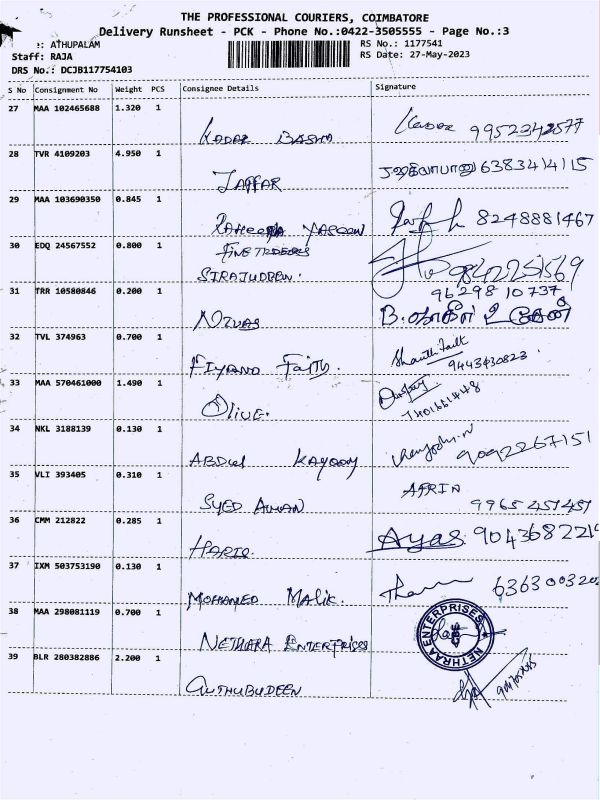 THE PROFESSIONAL COURIERS, COIMBATORE
Delivery Runsheet - PCK - Phone No.:0422-3505555 - Page No.:3
: ATHUPALAM RS No.: 1177541
Staff: RAJA RS Date: 27-May-2023
DRS No.: DCJB117754103
S No Consignment No Weight PCS Consignee Details Signature
27 MAA 102465688 1.320 1
KADAR BASHA 9952342577
28 TVR 4109203 4.950 1
JAFFAR 6383414115
29 MAA 103690350 0.845 1
RAHEEMA YASEEN 8248881467
30 EDQ 24567552 0.800 1
FINE TRADERS
SIRAJUDEEN. 9842251569
31 TRR 10580846 0.200 1 96298 10737
NIVAS B.
32 TVL 374963 0.700 1
FIYAND FAITH. 9443430823
33 MAA 570461000 1.490 1
OLIVE. 7401661448
34 NKL 3188139 0.130 1
ABDUL KAYOOM 9092267151
35 VLI 393405 0.310 1 AFRIN
SYED AMMAN 9965 457457
36 CMM 212822 0.285 1
HARIQ. Ayas 904368221
37 IXM 503753190 0.130 1
MOHAMED MALIK. 636300320
38 MAA 298081119 0.700 1
NETHRA ENTERPRISES NETHRAA ENTERPRISES
39 BLR 280382886 2.200 1
QUTHUBUDEEN